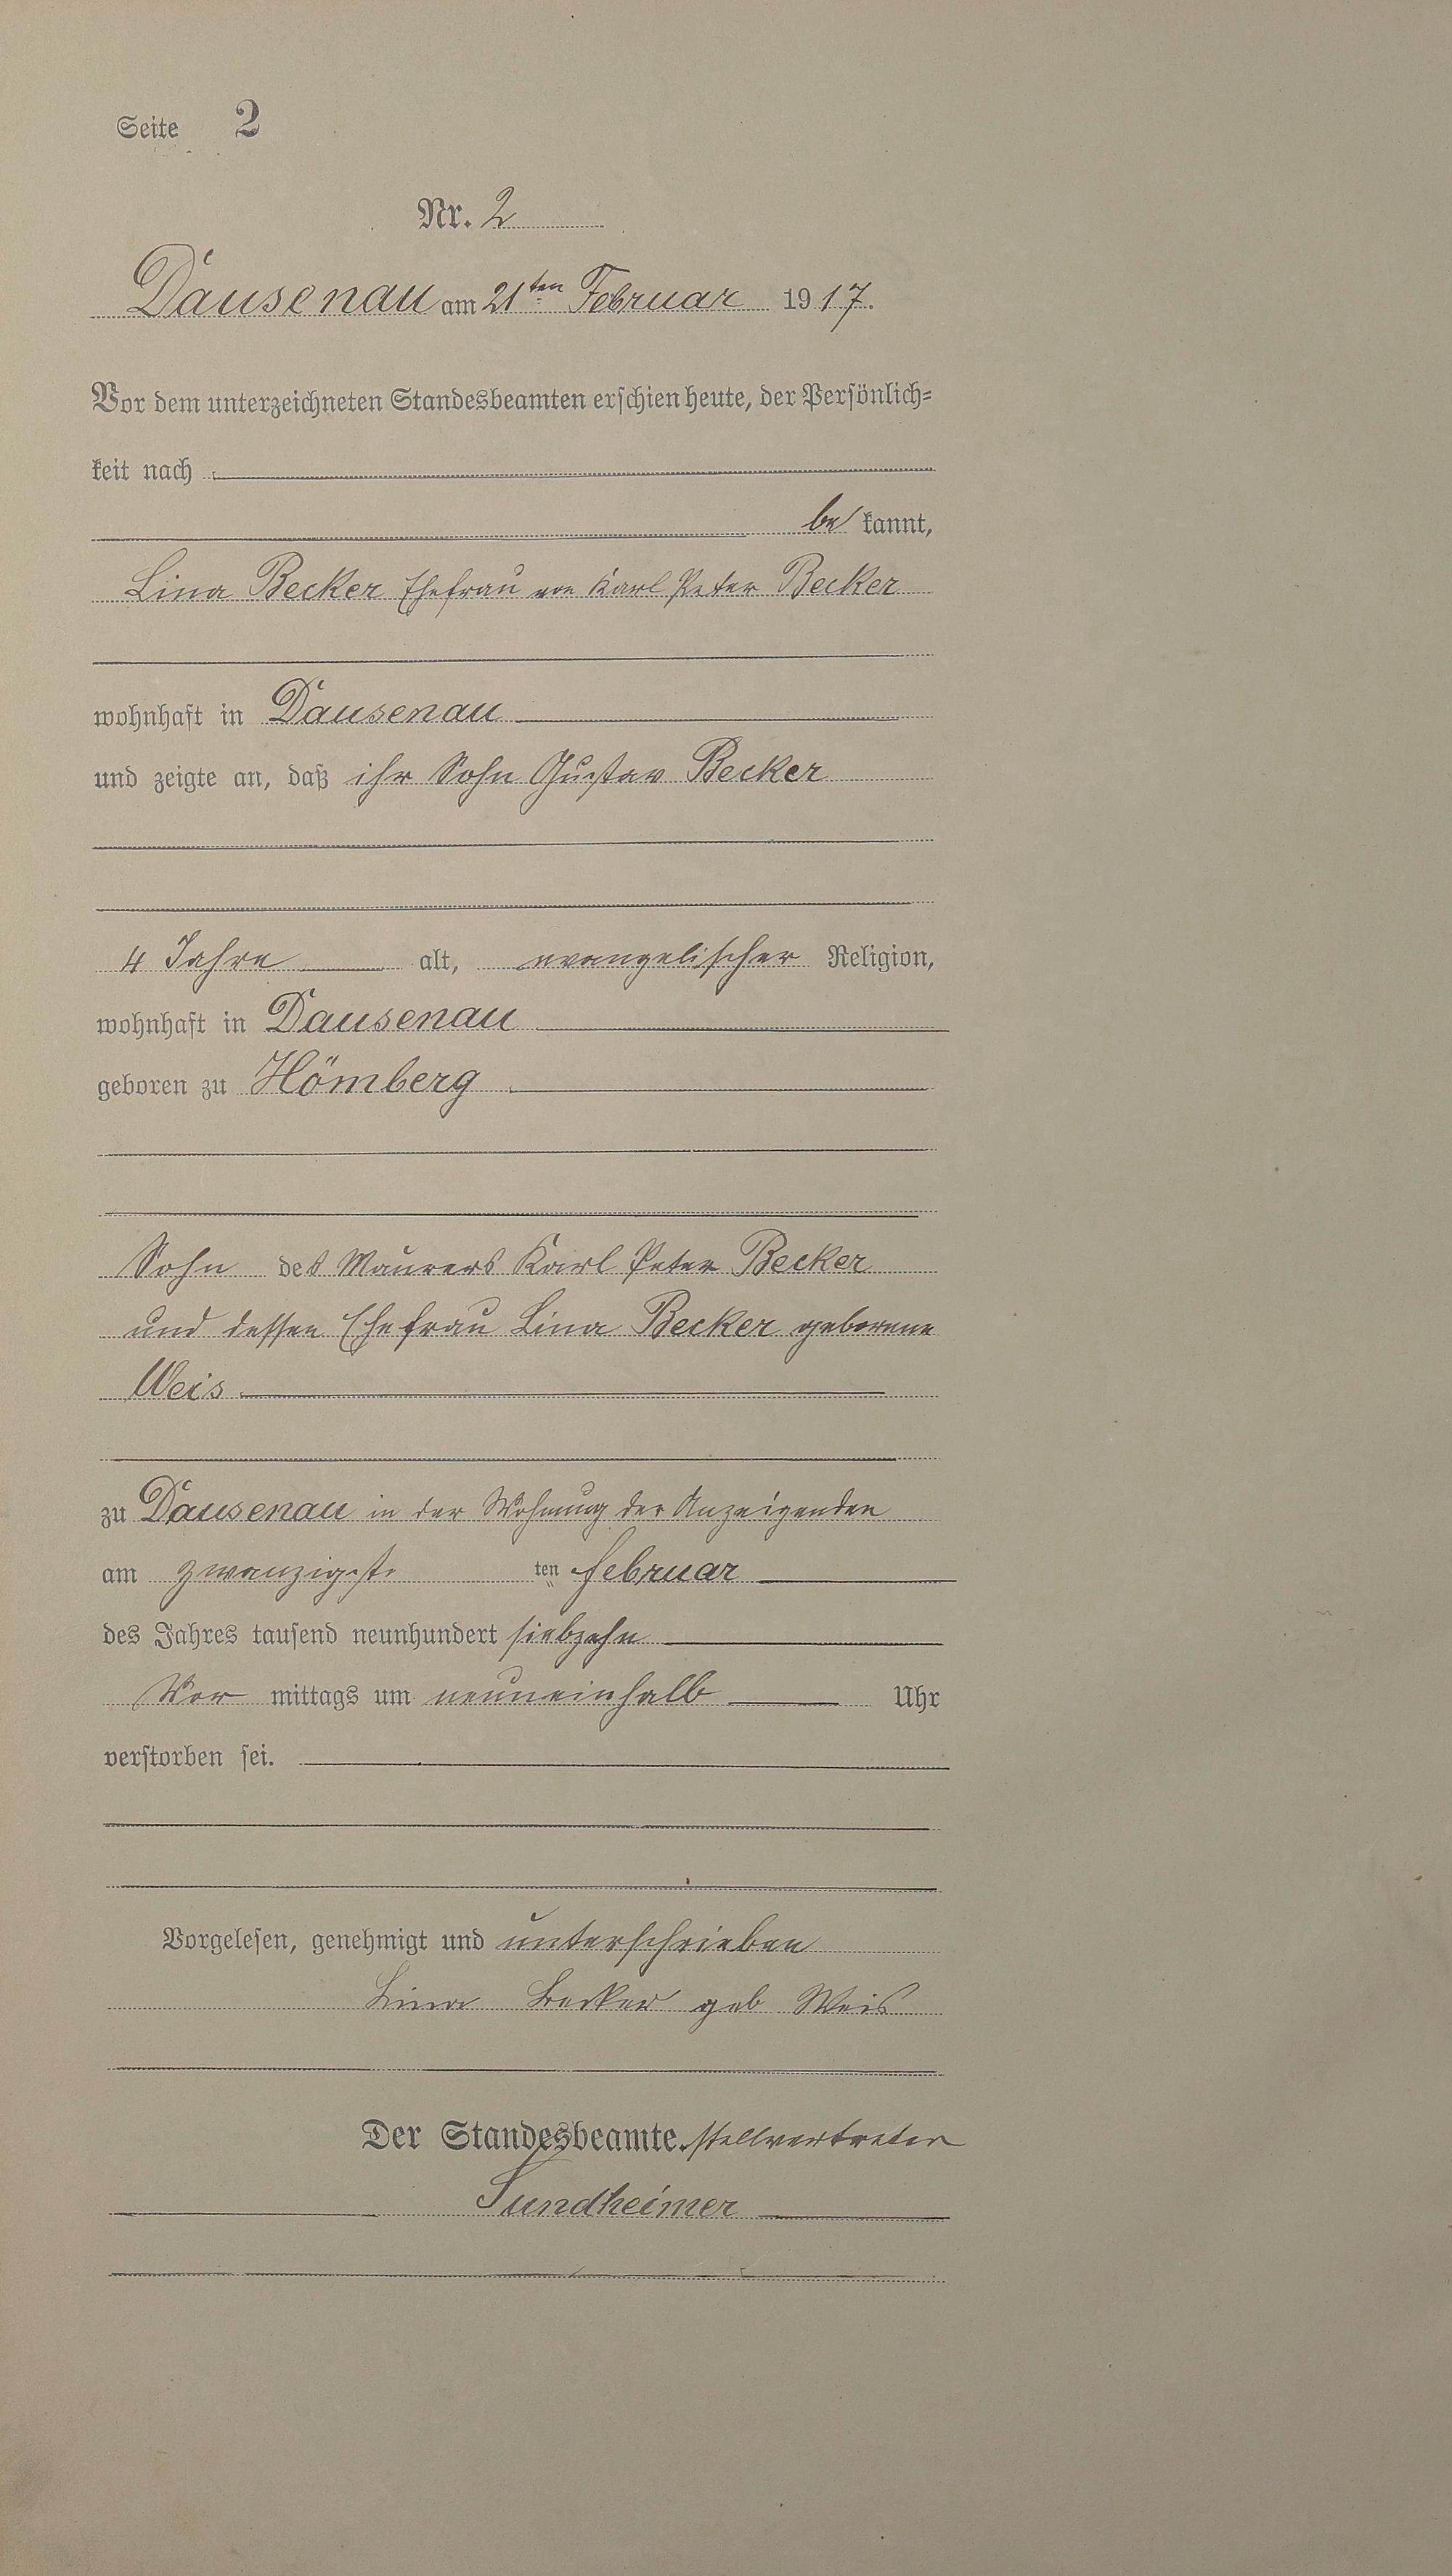 Seite 2
Nr. 2
Dausenau am 21ten Februar 1917.
Vor dem unterzeichneten Standesbeamten erschien heute, der Persönlich-
keit nach
be kannt,
Lina Becker Ehefrau von Karl Peter Becker
wohnhaft in Dausenau
und zeigte an, daß ihr Sohn Gustav Becker
4 Jahre alt, evangelischer Religion,
wohnhaft in Dausenau
geboren zu Hömberg
Sohn des Maurers Karl Peter Becker
und dessen Ehefrau Lina Becker geborene
Weis
zu Dausenau in der Wohnung der Anzeigenden
am zwanzigste ten Februar
des Jahres tausend neunhundert siebzehn
Vor mittags um neuneinhalb Uhr
verstorben sei.
Vorgelesen, genehmigt und unterschrieben
Lina Becker geb Weis
Der Standesbeamte. stellvertreter
Sundheimer